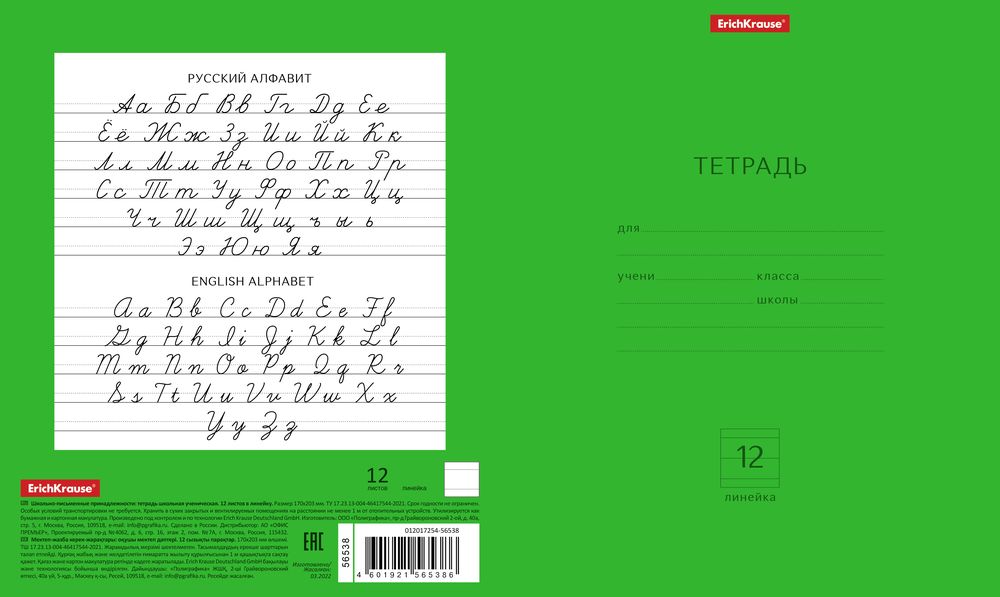 РУССКИЙ АЛФАВИТ
Аа Бб Вв Гг Дд Ее
Ёё Жж Зз Ии Йй Кк
Лл Мм Нн Оо Пп Рр
Сс Тт Уу Фф Хх Цц
Чч Шш Щщ ъ ы ь
Ээ Юю Яя
ENGLISH ALPHABET
Aa Bb Cc Dd Ee Ff
Gg Hh Ii Jj Kk Ll
Mm Nn Oo Pp Qq Rr
Ss Tt Uu Vv Ww Xx
Yy Zz
12
листов линейка
ErichKrause®
Школьно-письменные принадлежности: тетрадь школьная ученическая. 12 листов в линейку. Размер 170х203 мм. ТУ 17.23.13-004-46417544-2021. Срок годности не ограничен.
Особых условий транспортировки не требуется. Хранить в сухих закрытых и вентилируемых помещениях на расстоянии не менее 1 м от отопительных устройств. Утилизируется как
бумажная и картонная макулатура. Произведено под контролем и по технологии Erich Krause Deutschland GmbH. Изготовитель: ООО «Полиграфика», пр-д Грайвороновский 2-ой, д. 40а,
стр. 5, г. Москва, Россия, 109518, e-mail: info@pgrafika.ru. Сделано в России. Дистрибьютор: АО «ОФИС
ПРЕМЬЕР», Проектируемый пр-д №4062, д. 6, стр. 16, этаж 2, пом. №7А, г. Москва, Россия, 115432.
Мектеп-жазба керек-жарақтары: оқушы мектеп дәптері. 12 сызықты парақтар. 170х203 мм өлшемі.
ТШ 17.23.13-004-46417544-2021. Жарамдылық мерзімі шектелмеген. Тасымалдаудың ерекше шарттарын
талап етпейді. Құрғақ жабық және желдетілетін
қажет. Қағаз және картон макулатура ретінде кәдеге жаратылады. Erich Krause Deutschland GmbH бақылауы
және технологиясы бойынша өндірілген. Дайындаушы: «Полиграфика» ЖШҚ, 2-ші Грайвороновский
өтпесі, 40а үй, 5-құр., Мәскеу қ-сы, Ресей, 109518, e-mail: info@pgrafika.ru. Ресейде жасалған.
EAC
Изготовлено/
Жасалған:
03.2022
56538
012017254-56538
4 601921 565386
ErichKrause®
ТЕТРАДЬ
для
учени класса
школы
12
линейка